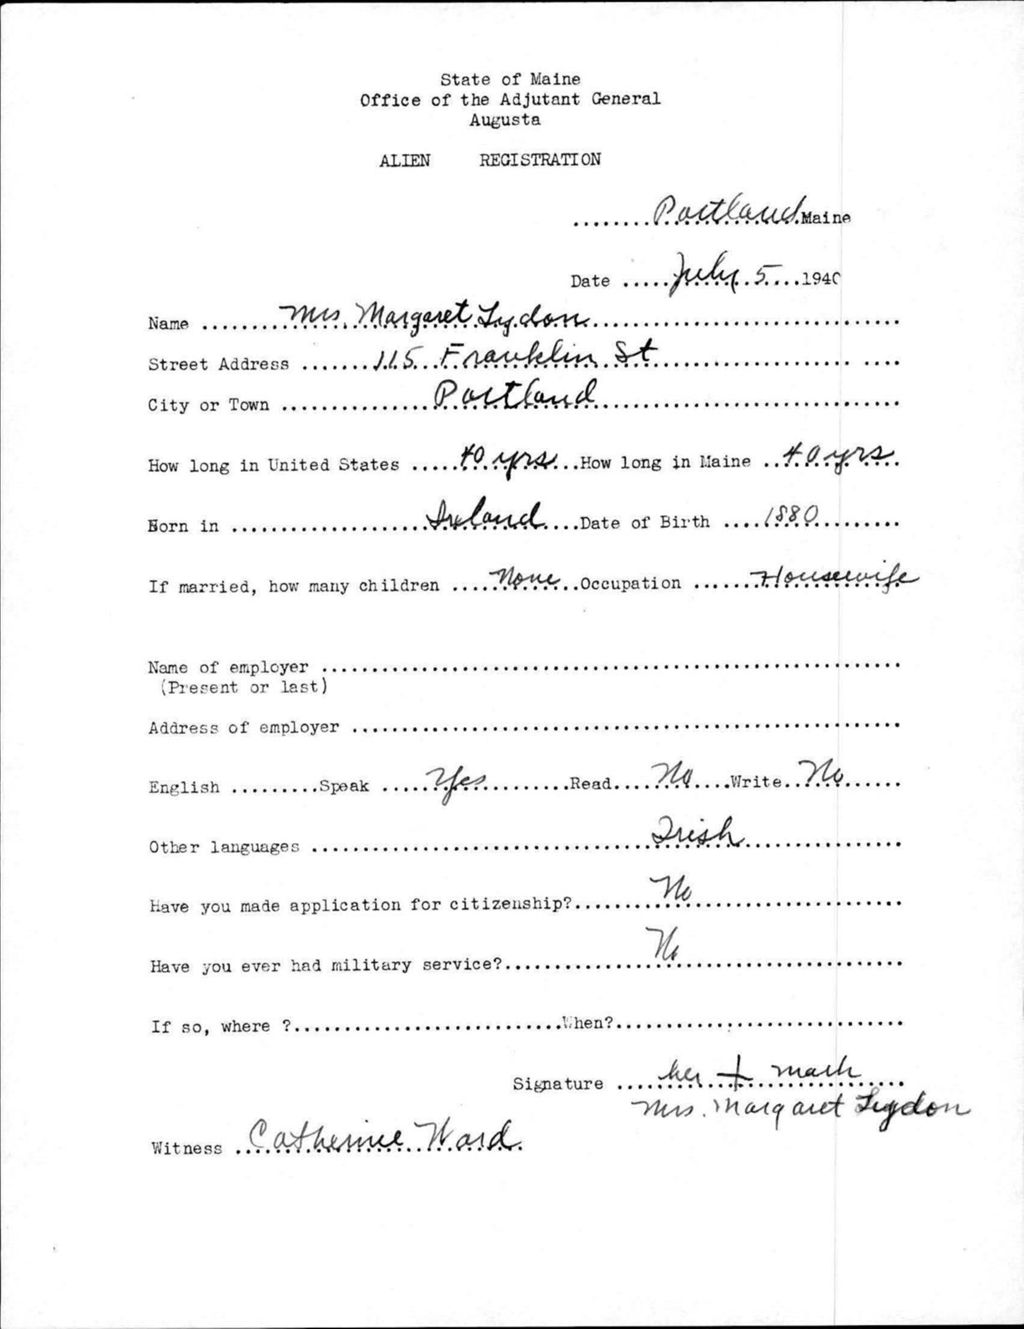 State of Maine
Office of the Adjutant General
Augusta
ALIEN REGISTRATION
........Portland Maine
Date .....July 5....1940
Name .........Mrs. Margaret Lydon....................................
Street Address ........115 Franklin St............................ ....
City or Town .................Portland....................................
How long in United States .....40 yrs...How long in Maine ..40 yrs.
Born in .......................Ireland....Date of Birth ....1880..........
If married, how many children ....None..Occupation ......Housewife
Name of employer ....................................................................
(Present or last)
Address of employer .................................................................
English .........Speak .....Yes..........Read....No....Write..No......
Other languages ........................................Irish...................
Have you made application for citizenship?.........No.........................
Have you ever had military service?.................No..........................
If so, where ?................................When?..................................
Signature ....her + mark.....
Mrs. Margaret Lydon
Witness ..Catherine Ward.